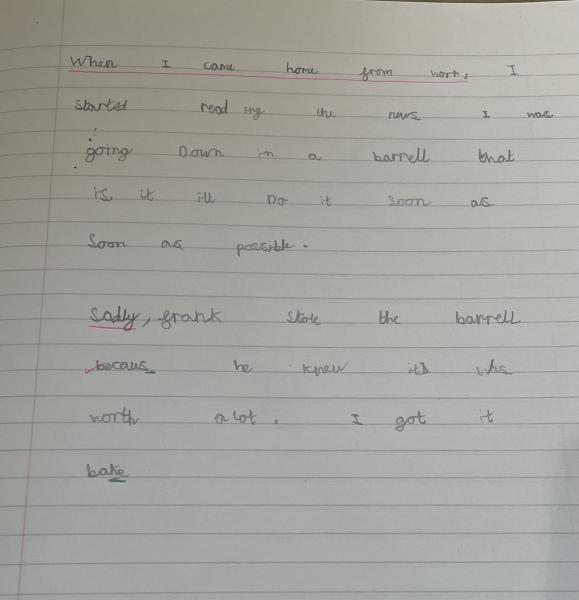 When I came home from work, I
started reading the news I was
going Down in a barrell that
is it ill Do it soon as
soon as possible.
Sadly, frank stole the barrell
becaus he knew it was
worth a lot. I got it
bake